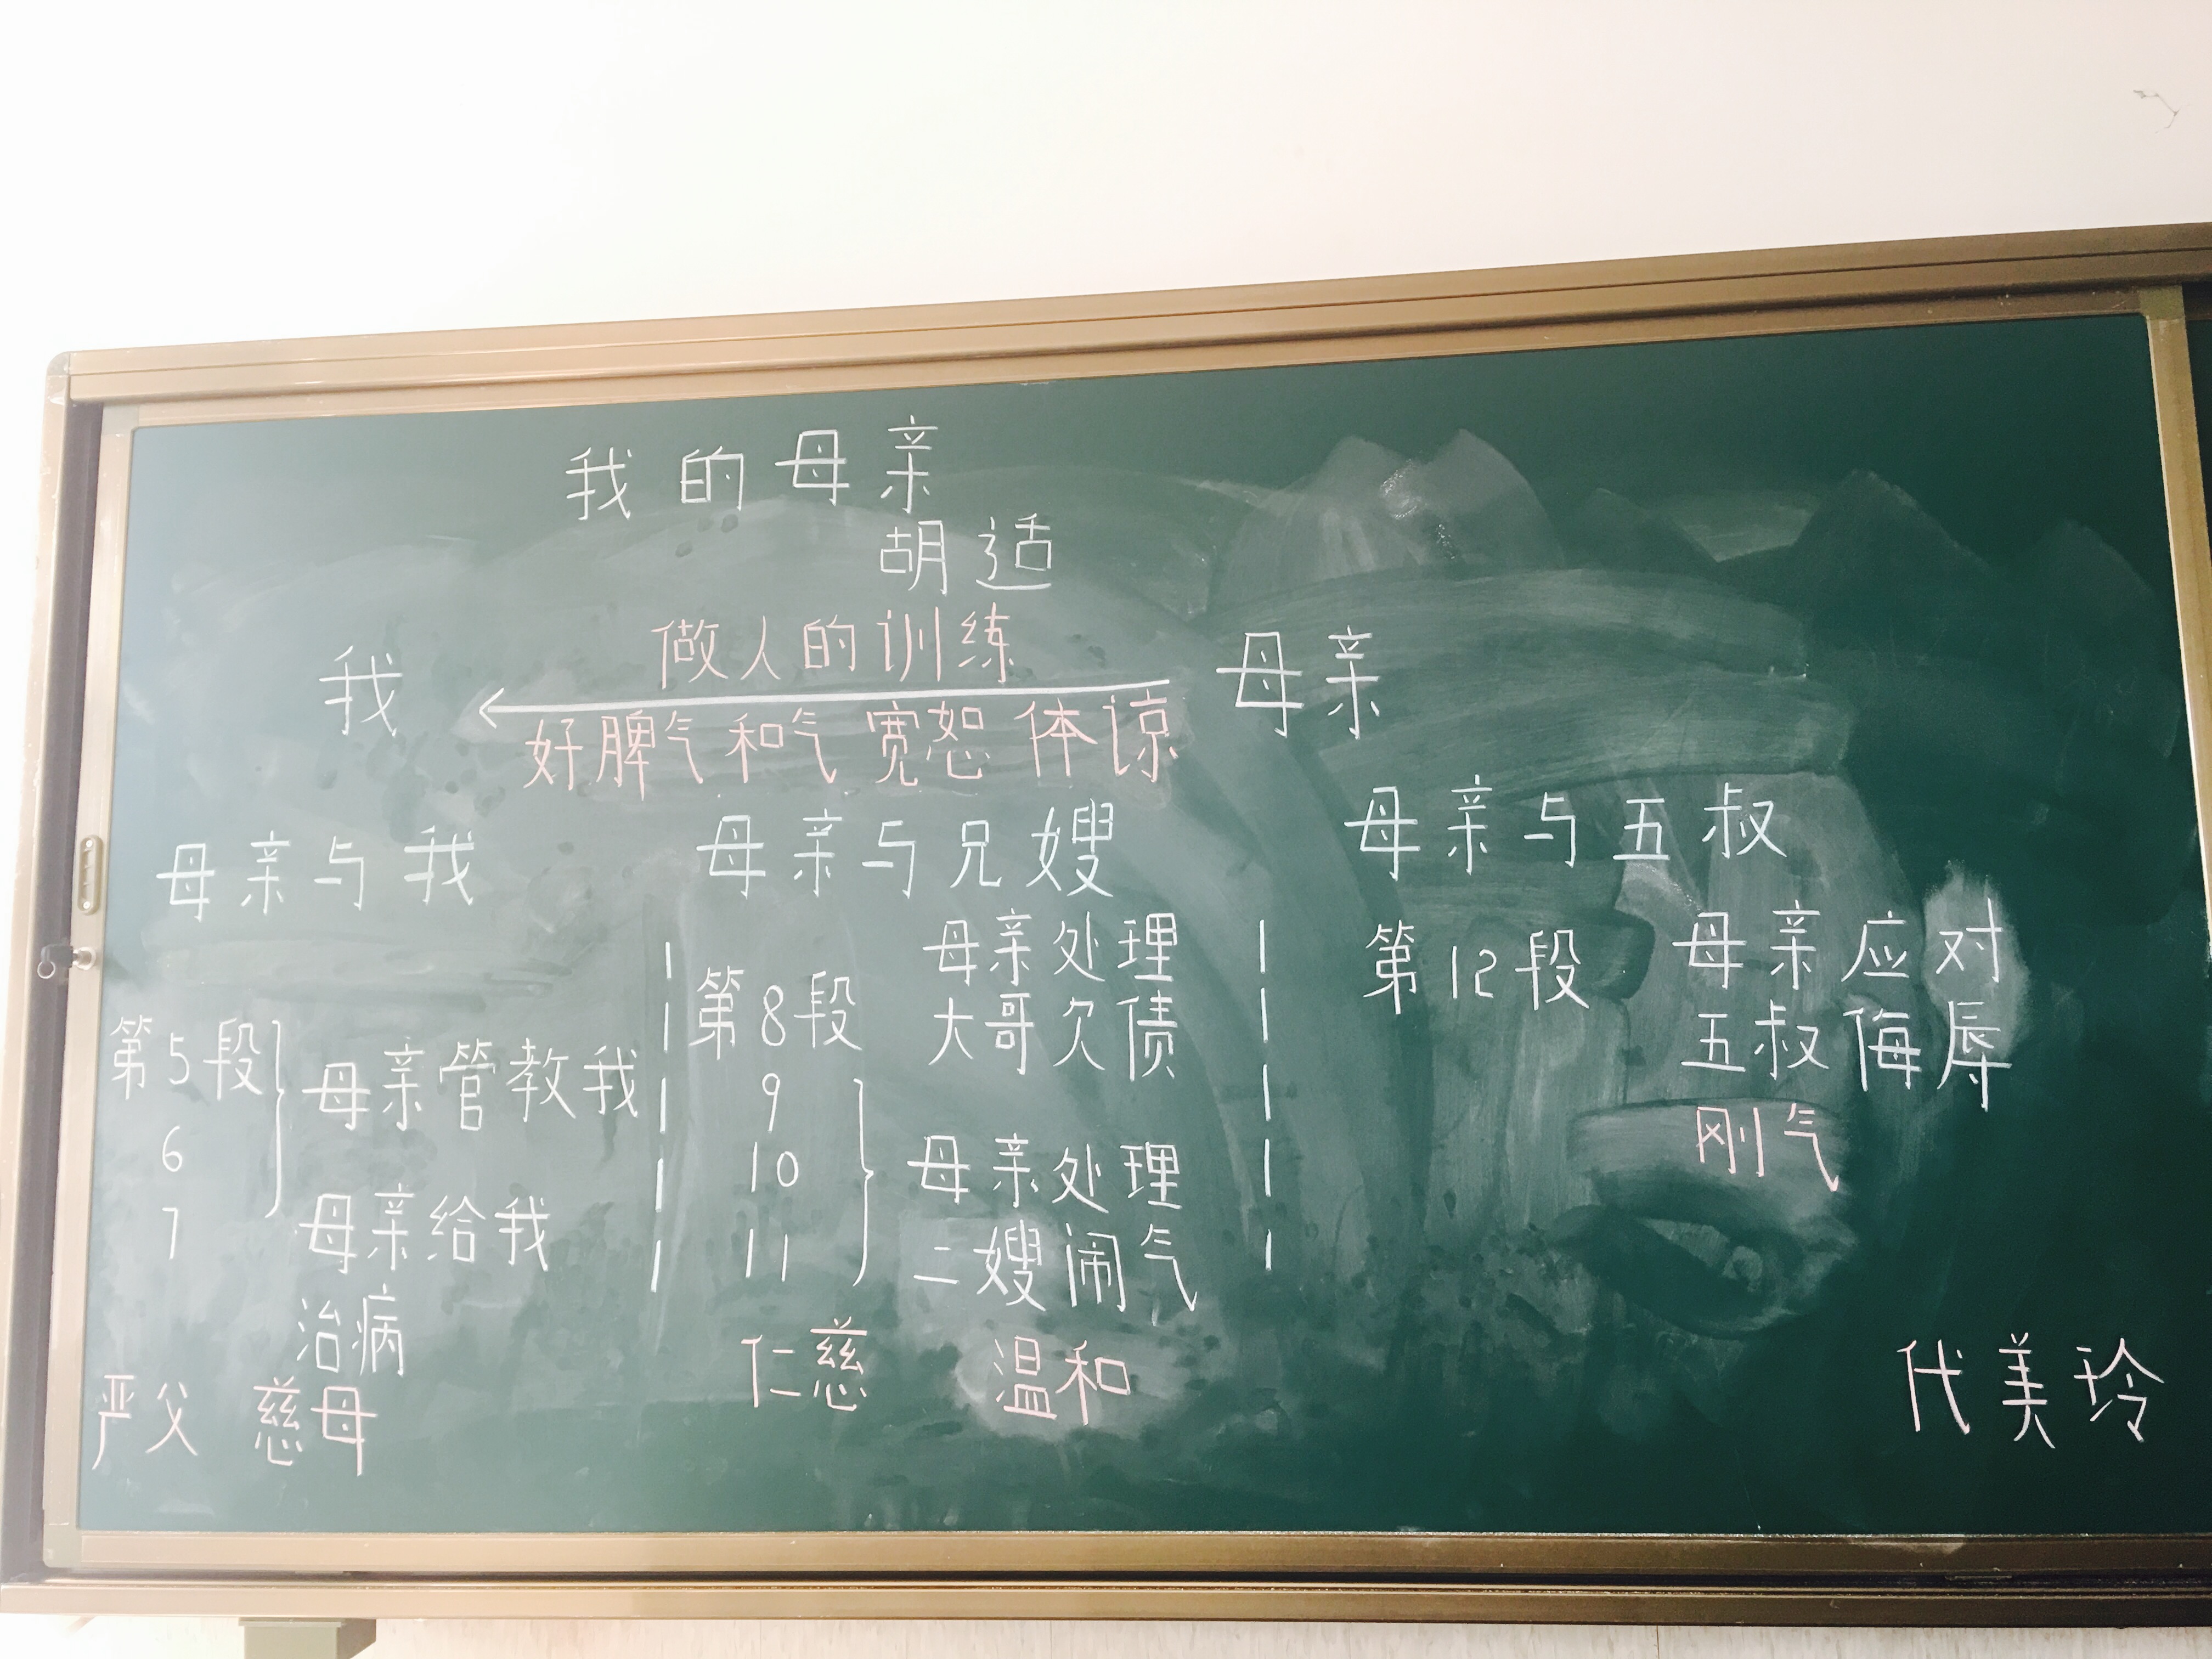 我的母亲
胡适
做人的训练
我 母亲
好脾气 和气 宽恕 体谅
母亲与我
第5段
6
母亲管教我
7
母亲给我
治病
严父 慈母
母亲与兄嫂
第8段
母亲处理
大哥欠债
9
10
11
母亲处理
二嫂闹气
仁慈 温和
母亲与五叔
第12段
母亲应对
五叔侮辱
刚气
代美玲